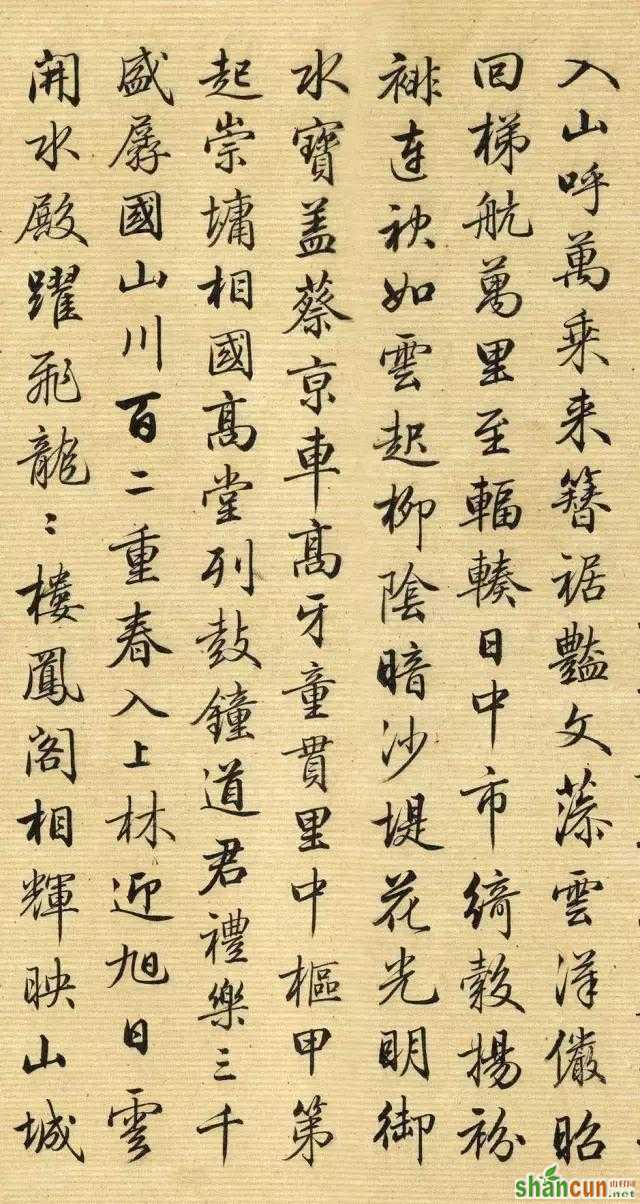 入山呼萬乘来簪裾豔文藻雲漢儼昭
回梯航萬里至輻輳日中市綺縠揚衯
裶連袂如雲起柳陰暗沙堤花光明御
水寶盖蔡京車高牙童貫里中樞甲第
起崇墉相國高堂列鼓鐘道君禮樂三千
盛孱國山川百二重春入上林迎旭日雲
開水殿躍飛龍〻樓鳳閣相輝映山城
shancun 山村网
.net